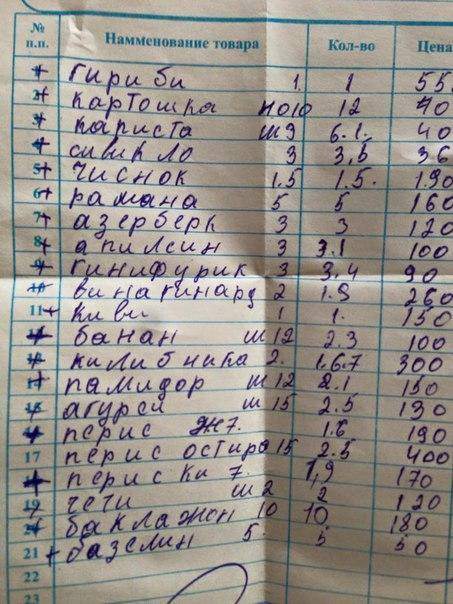 № п.п. Наименование товара Кол-во Цена
1 гириби 1. 1 55
2 картошка но10 12 40
3 кариста ш9 6.1. 40
4 сивикло 3 3,5 36
5 чиснок 1.5 1.5. 190
6 рамана 5 5 160
7 азерберк 3 3 120
8 апилсин 3 3.1 100
9 гинифурик 3 3,4 90
10 винагинард 2 1.9 260
11 киви 1 1. 150
12 банан ш12 2.3 100
13 килибника 2. 1.6.7 300
14 памидор ш12 2.1 150
15 агурси ш15 2.5 130
16 перис ж7. 1.6 190
17 перис остиро 15 2.5 400
18 периски 7. 1,9 170
19 чети ш2 2 120
20 баклажон 10 10 180
21 базелин 5. 5 50
22
23